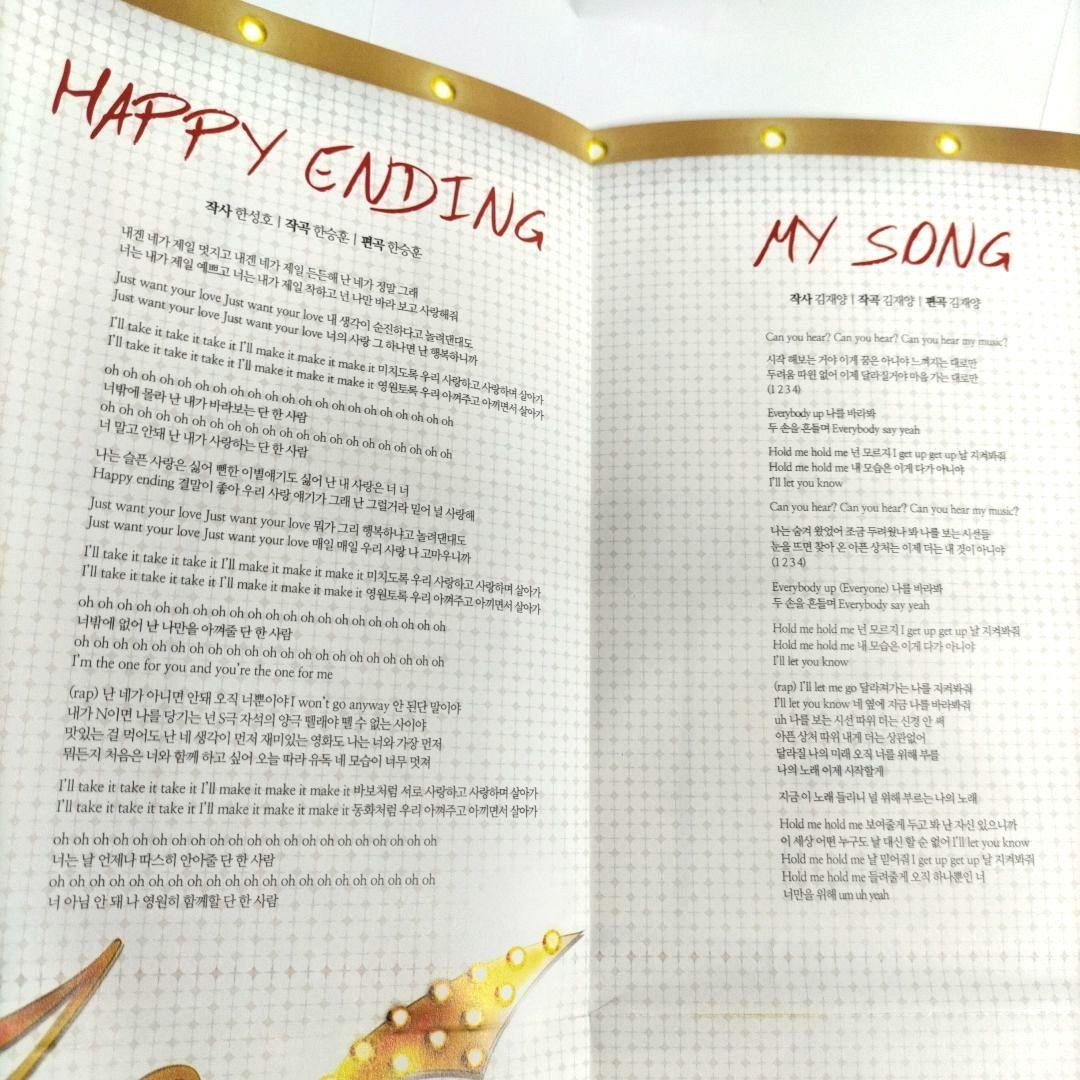 HAPPY ENDING
작사 한성호 | 작곡 한승훈 | 편곡 한승훈
내겐 네가 제일 멋지고 내겐 네가 제일 든든해 난 네가 정말 그래
너는 내가 제일 예쁘고 너는 내가 제일 착하고 넌 나만 바라 보고 사랑해줘
Just want your love Just want your love 내 생각이 순진하다고 놀려댄대도
Just want your love Just want your love 너의 사랑 그 하나면 난 행복하니까
I'll take it take it take it I'll make it make it make it 미치도록 우리 사랑하고 사랑하며 살아가
I'll take it take it take it I'll make it make it make it 영원토록 우리 아껴주고 아끼면서 살아가
oh oh oh oh oh oh oh oh oh oh oh oh oh oh oh oh oh oh oh oh
너밖에 몰라 난 내가 바라보는 단 한 사람
oh oh oh oh oh oh oh oh oh oh oh oh oh oh oh oh oh oh oh oh
너 말고 안돼 난 내가 사랑하는 단 한 사람
나는 슬픈 사랑은 싫어 뻔한 이별얘기도 싫어 난 내 사랑은 너 너
Happy ending 결말이 좋아 우리 사랑 얘기가 그래 난 그럴거라 믿어 널 사랑해
Just want your love Just want your love 뭐가 그리 행복하냐고 놀려댄대도
Just want your love Just want your love 매일 매일 우리 사랑 나 고마우니까
I'll take it take it take it I'll make it make it make it 미치도록 우리 사랑하고 사랑하며 살아가
I'll take it take it take it I'll make it make it make it 영원토록 우리 아껴주고 아끼면서 살아가
oh oh oh oh oh oh oh oh oh oh oh oh oh oh oh oh oh oh oh oh
너밖에 없어 난 나만을 아껴줄 단 한 사람
oh oh oh oh oh oh oh oh oh oh oh oh oh oh oh oh oh oh oh oh
I'm the one for you and you're the one for me
(rap) 난 네가 아니면 안돼 오직 너뿐이야 I won't go anyway 안 된단 말이야
내가 N이면 나를 당기는 넌 S극 자석의 양극 뗄래야 뗄 수 없는 사이야
맛있는 걸 먹어도 난 네 생각이 먼저 재미있는 영화도 나는 너와 가장 먼저
뭐든지 처음은 너와 함께 하고 싶어 오늘 따라 유독 네 모습이 너무 멋져
I'll take it take it take it I'll make it make it make it 바보처럼 서로 사랑하고 사랑하며 살아가
I'll take it take it take it I'll make it make it make it 동화처럼 우리 아껴주고 아끼면서 살아가
oh oh oh oh oh oh oh oh oh oh oh oh oh oh oh oh oh oh oh oh oh
너는 날 언제나 따스히 안아줄 단 한 사람
oh oh oh oh oh oh oh oh oh oh oh oh oh oh oh oh oh oh oh oh oh
너 아님 안 돼 나 영원히 함께할 단 한 사람
MY SONG
작사 김재양 | 작곡 김재양 | 편곡 김재양
Can you hear? Can you hear? Can you hear my music?
시작 해보는 거야 이게 꿈은 아니야 느껴지는 대로만
두려움 따윈 없어 이제 달라질거야 마음 가는 대로만
(1 2 3 4)
Everybody up 나를 바라봐
두 손을 흔들며 Everybody say yeah
Hold me hold me 넌 모르지 I get up get up 날 지켜봐줘
Hold me hold me 내 모습은 이게 다가 아니야
I'll let you know
Can you hear? Can you hear? Can you hear my music?
나는 숨겨 왔었어 조금 두려웠나 봐 나를 보는 시선들
눈을 뜨면 찾아 온 아픈 상처는 이제 더는 내 것이 아니야
(1 2 3 4)
Everybody up (Everyone) 나를 바라봐
두 손을 흔들며 Everybody say yeah
Hold me hold me 넌 모르지 I get up get up 날 지켜봐줘
Hold me hold me 내 모습은 이게 다가 아니야
I'll let you know
(rap) I'll let me go 달라져가는 나를 지켜봐줘
I'll let you know 네 옆에 지금 나를 바라봐줘
uh 나를 보는 시선 따위 더는 신경 안 써
아픈 상처 따위 내게 더는 상관없어
달라질 나의 미래 오직 너를 위해 부를
나의 노래 이제 시작할게
지금 이 노래 들리니 널 위해 부르는 나의 노래
Hold me hold me 보여줄게 두고 봐 난 자신 있으니까
이 세상 어떤 누구도 날 대신 할 순 없어 I'll let you know
Hold me hold me 날 믿어줘 I get up get up 날 지켜봐줘
Hold me hold me 들려줄게 오직 하나뿐인 너
너만을 위해 um uh yeah